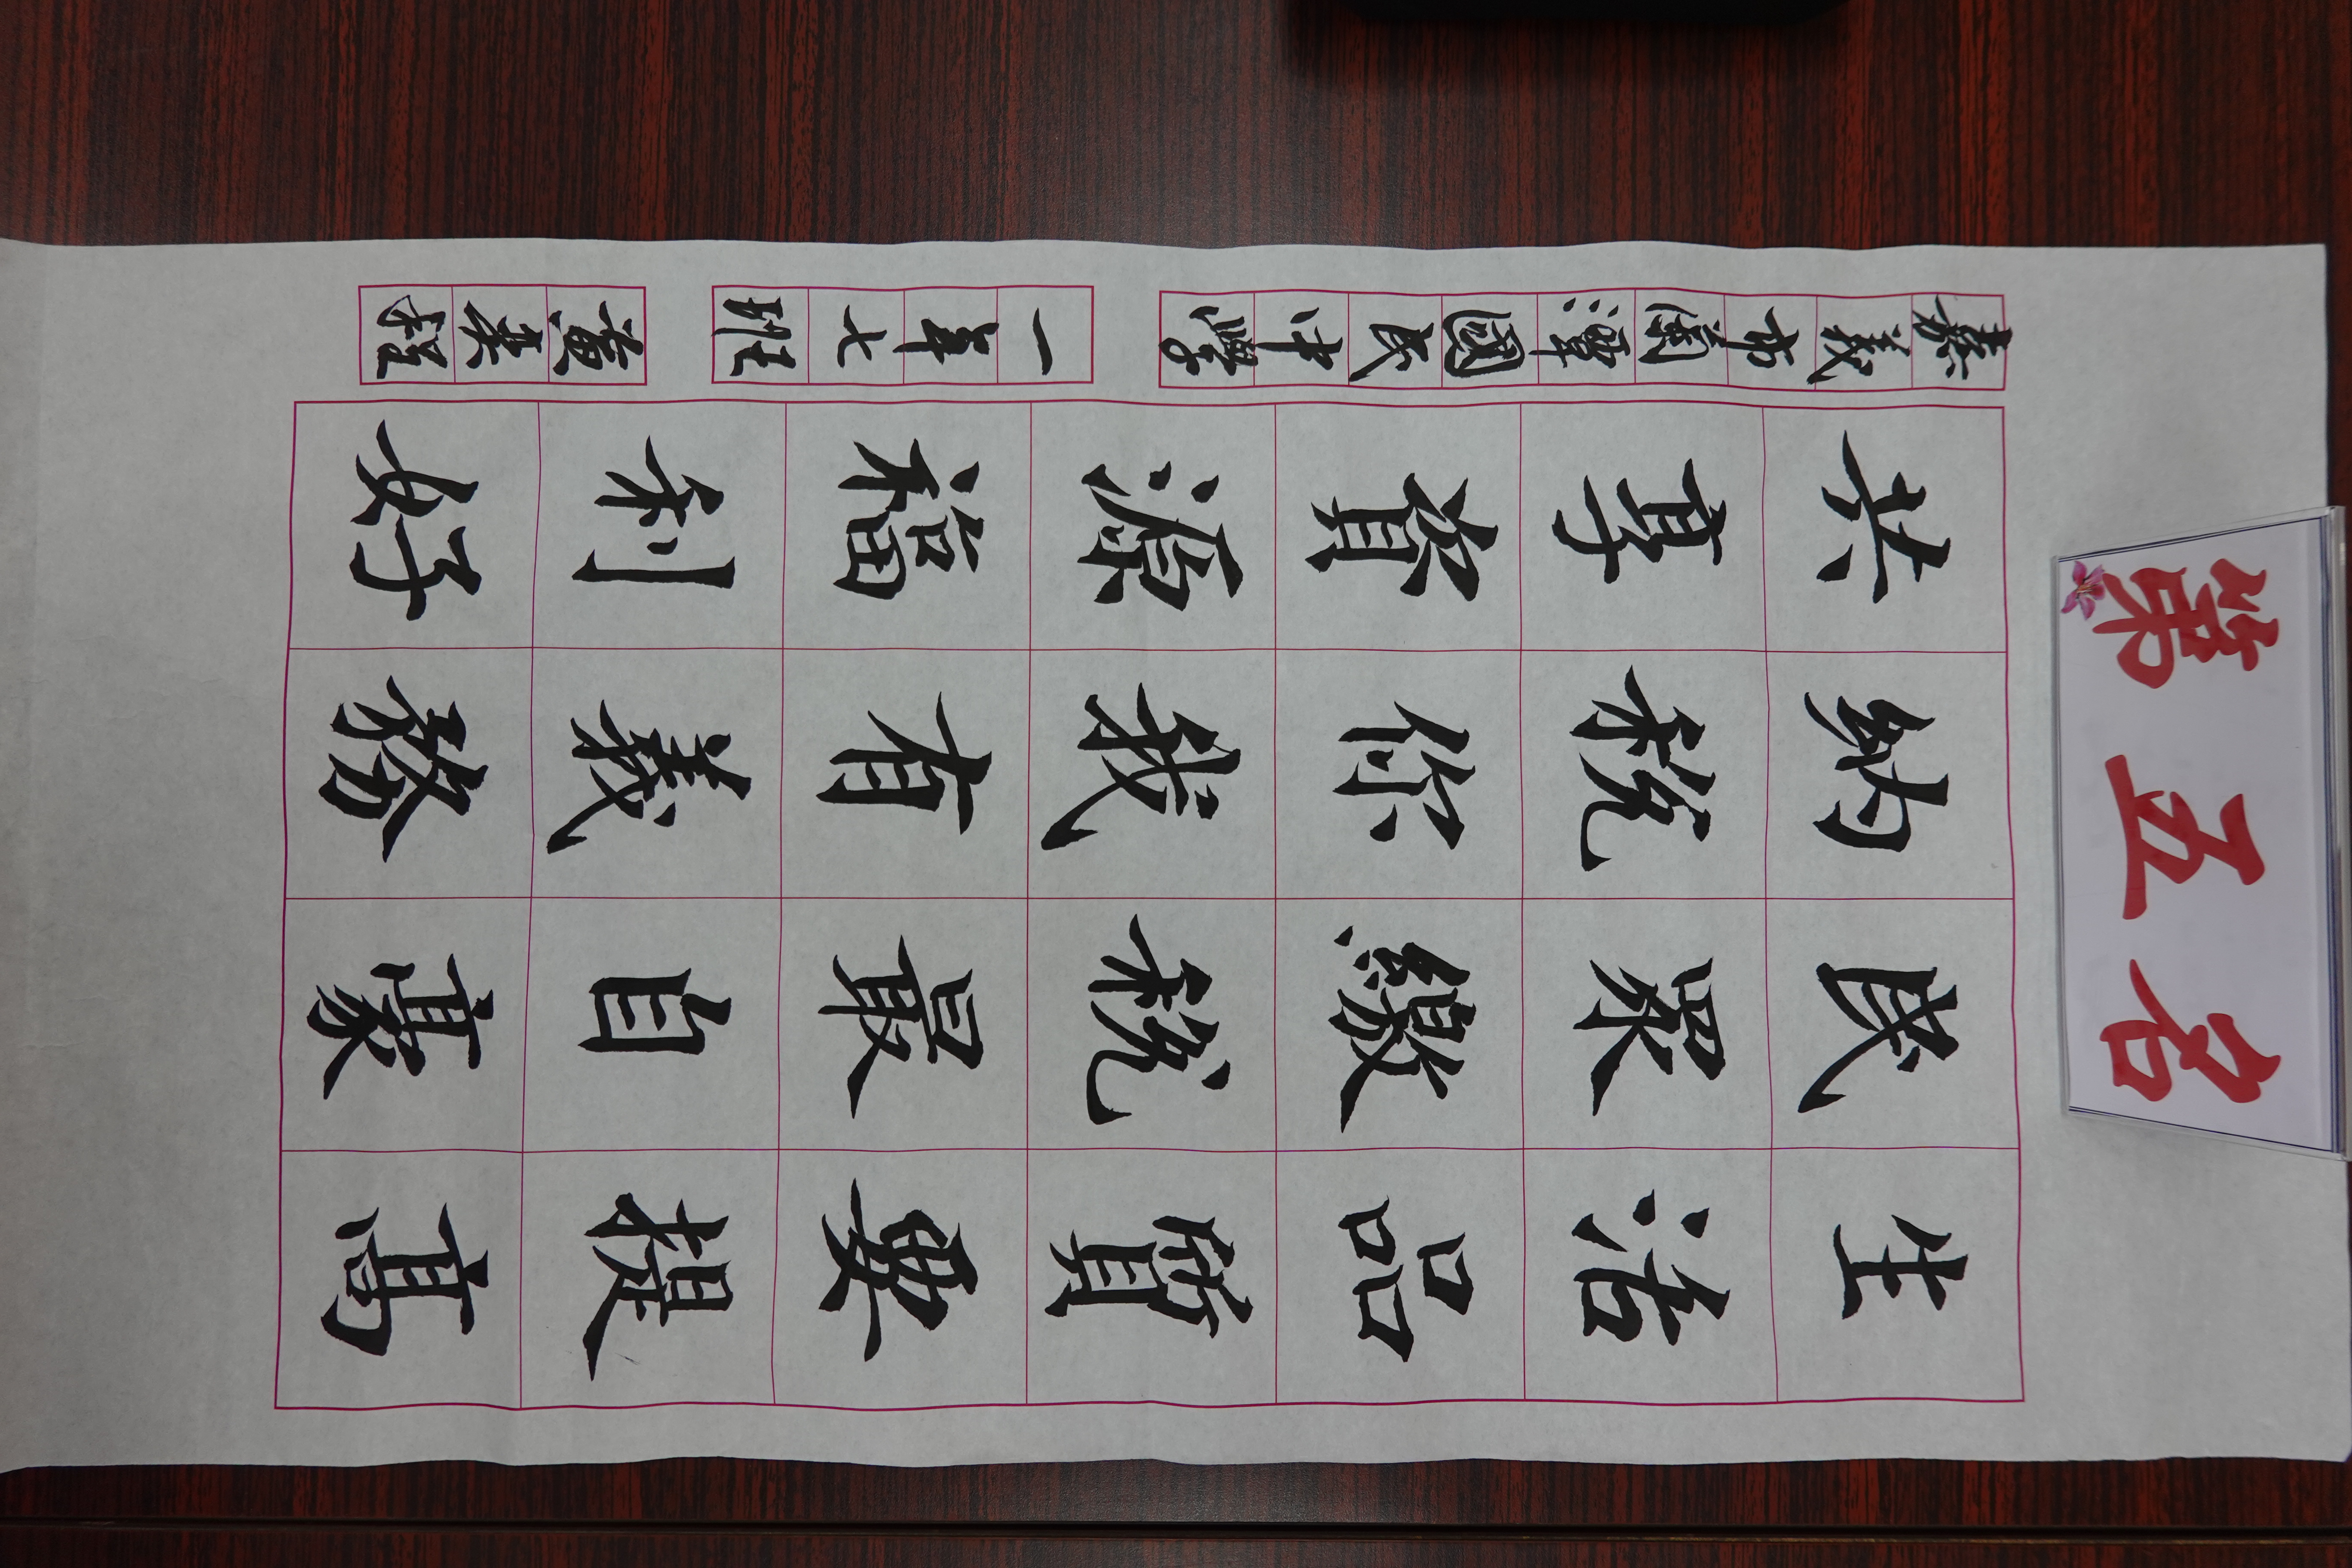 第五名
生活品質要提高
民眾繳稅最自豪
納稅你我有義務
共享資源福利好
嘉義市蘭潭國民中學 一年七班 黃程